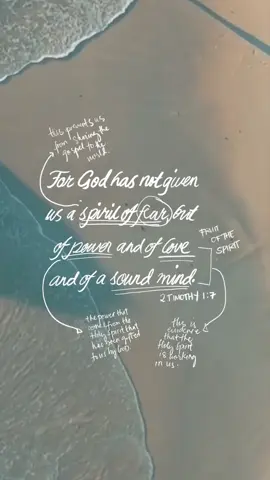 this prevents us
from sharing the
gospel to the
world.
For God has not given
us a spirit of fear, but
of power and of love
and of a sound mind.
2 TIMOTHY 1:7
FRUIT
OF THE
SPIRIT
the power that
comes from the
Holy Spirit that
has been gifted
to us by GOD.
this is
evidence
that the
Holy Spirit
is working
in us.